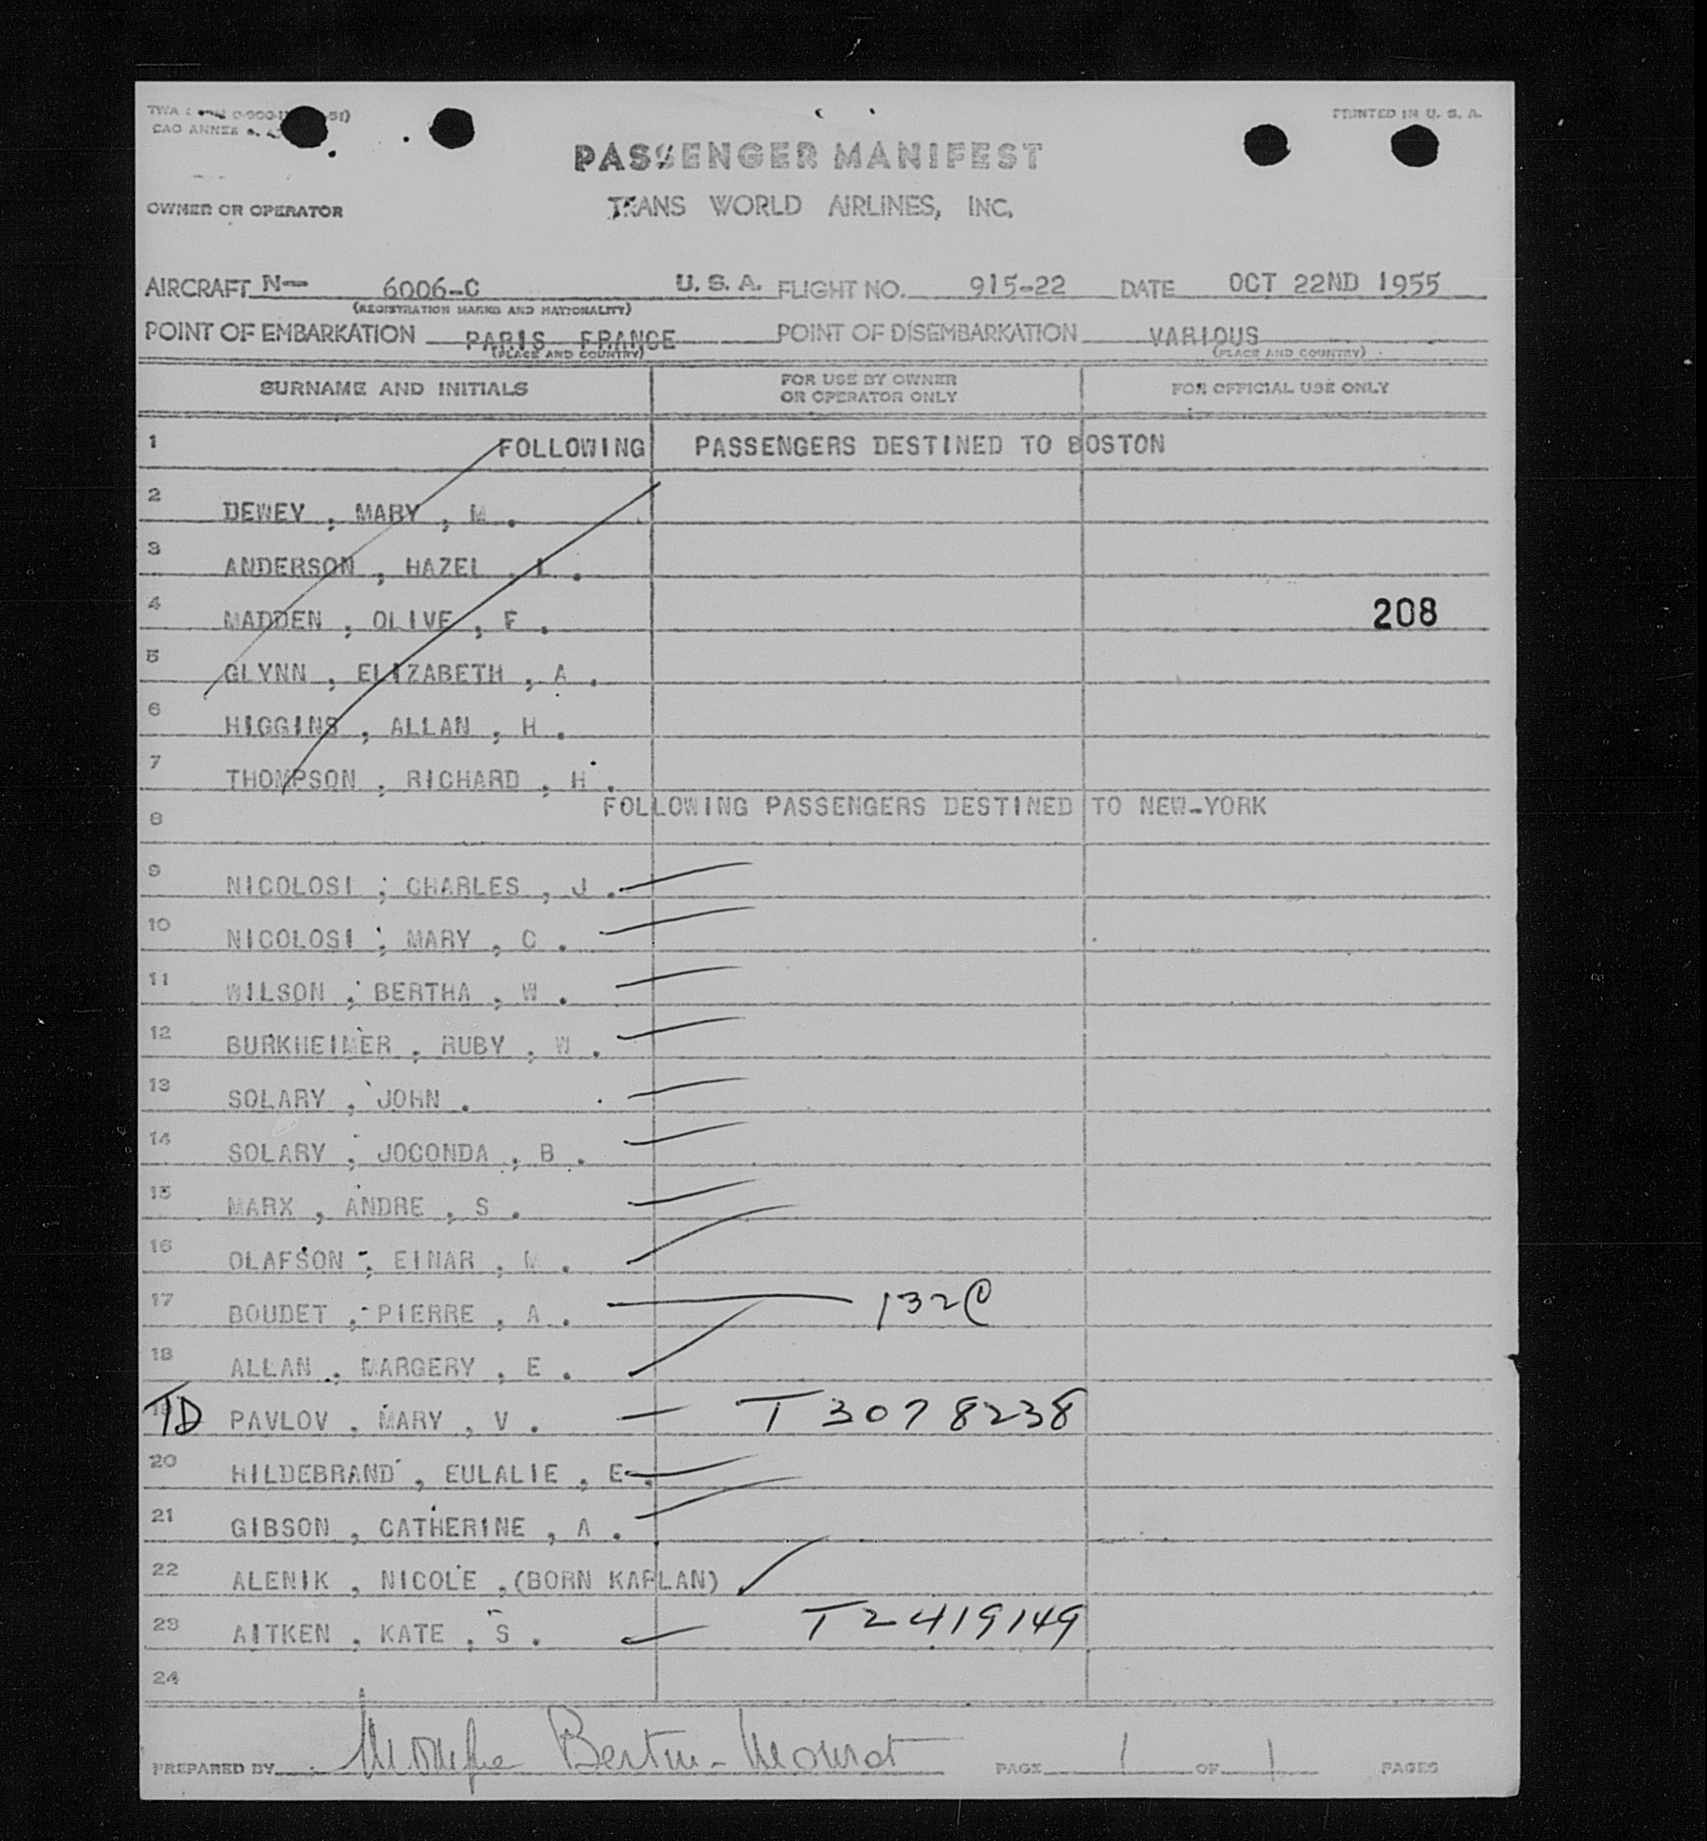 PRINTED IN U. S. A.
PASSENGER MANIFEST
OWNER OR OPERATOR TRANS WORLD AIRLINES, INC.
AIRCRAFT N- 6006-C U. S. A. FLIGHT NO. 915-22 DATE OCT 22ND 1955
(REGISTRATION MARKS AND NATIONALITY)
POINT OF EMBARKATION PARIS FRANCE POINT OF DISEMBARKATION VARIOUS
(PLACE AND COUNTRY) (PLACE AND COUNTRY)
SURNAME AND INITIALS FOR USE BY OWNER OR OPERATOR ONLY FOR OFFICIAL USE ONLY
1 FOLLOWING PASSENGERS DESTINED TO BOSTON
2 DEWEY , MARY , M .
3 ANDERSON , HAZEL , L .
4 MADDEN , OLIVE , F . 208
5 GLYNN , ELIZABETH , A .
6 HIGGINS , ALLAN , H .
7 THOMPSON , RICHARD , H .
8 FOLLOWING PASSENGERS DESTINED TO NEW-YORK
9 NICOLOSI , CHARLES , J .
10 NICOLOSI , MARY , C .
11 WILSON , BERTHA , W .
12 BURKHEIMER , RUBY , W .
13 SOLARY , JOHN .
14 SOLARY , JOCONDA , B .
15 MARX , ANDRE , S .
16 OLAFSON , EINAR , M .
17 BOUDET , PIERRE , A . 132
18 ALLAN , MARGERY , E .
TD PAVLOV , MARY , V . T 3078238
20 HILDEBRAND , EULALIE , E .
21 GIBSON , CATHERINE , A .
22 ALENIK , NICOLE , (BORN KAPLAN)
23 AITKEN , KATE , S . T2419149
24
PREPARED BY Bertin-Mourot PAGE 1 OF 1 PAGES